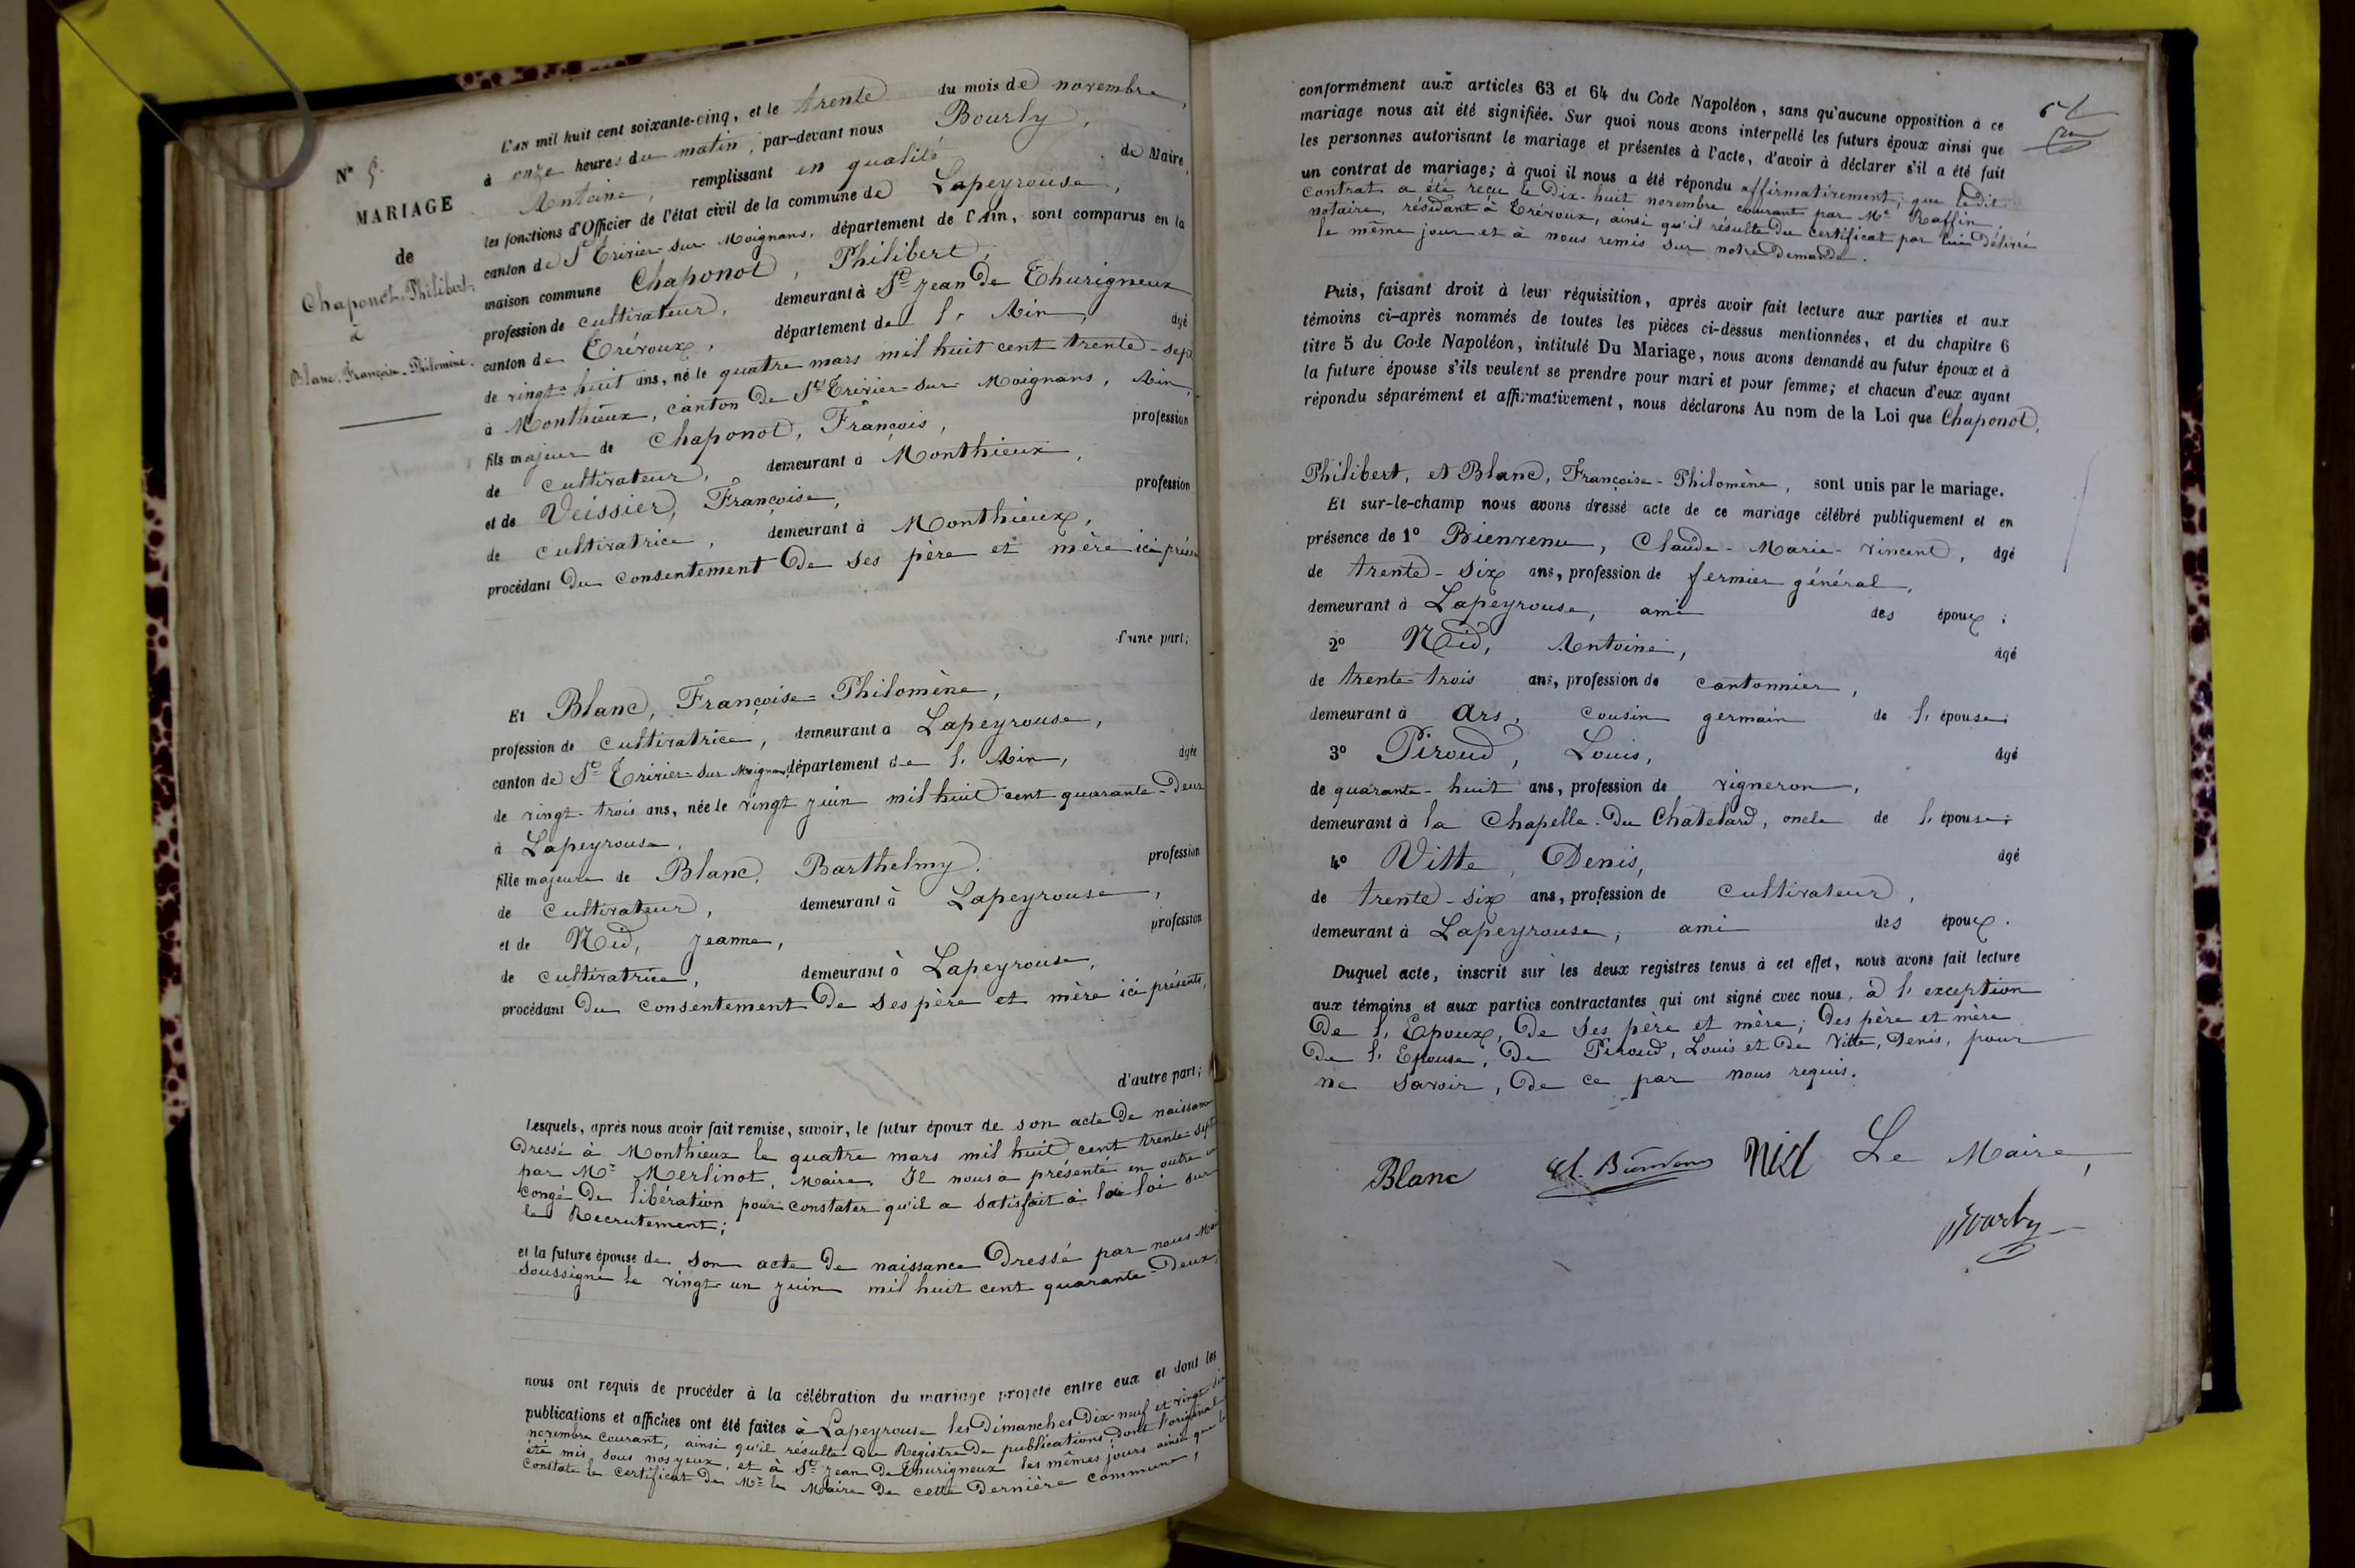 N° 5.
MARIAGE
de
Chaponot Philibert.
à
Blanc. Françoise-Philomène.
L'an mil huit cent soixante-cinq, et le trente du mois de novembre,
à onze heures du matin, par-devant nous Bourly,
Antoine, remplissant en qualité de Maire,
les fonctions d'Officier de l'état civil de la commune de Lapeyrouse,
canton de St Trivier-sur-Moignans, département de l'Ain, sont comparus en la
maison commune Chaponot, Philibert,
profession de cultivateur, demeurant à St Jean de Thurigneux
canton de Trévoux, département de l'Ain, âgé
de vingt-huit ans, né le quatre mars mil huit cent trente-sept
à Monthieux, canton de St Trivier-sur-Moignans, Ain,
fils majeur de Chaponot, François, profession
de cultivateur, demeurant à Monthieux,
et de Veissier, Françoise, profession
de cultivatrice, demeurant à Monthieux,
procédant du consentement de ses père et mère ici présen
d'une part;
Et Blanc, Françoise-Philomène,
profession de cultivatrice, demeurant à Lapeyrouse,
canton de St Trivier-sur-Moignans département de l'Ain, âgée
de vingt-trois ans, née le vingt juin mil huit cent quarante-deux
à Lapeyrouse,
fille majeure de Blanc, Barthelmy, profession
de cultivateur, demeurant à Lapeyrouse,
et de Nid, Jeanne, profession
de cultivatrice, demeurant à Lapeyrouse,
procédant du consentement de ses père et mère ici présents,
d'autre part;
Lesquels, après nous avoir fait remise, savoir, le futur époux de son acte de naissance
dressé à Monthieux le quatre mars mil huit cent trente-sept
par Mr Merlinot, Maire. Il nous a présenté en outre un
congé de libération pour constater qu'il a satisfait à la loi sur
le Recrutement;
et la future épouse de son acte de naissance dressé par nous Mai
soussigné le vingt-un juin mil huit cent quarante-deux,
nous ont requis de procéder à la célébration du mariage projeté entre eux et dont les
publications et affiches ont été faites à Lapeyrouse les Dimanches dix-neuf et vingt-six
novembre courant, ainsi qu'il résulte du Registre de publications, dont l'original a
été mis sous nos yeux, et à St Jean de Thurigneux les mêmes jours ainsi que le
constate le certificat de Mr le Maire de cette dernière commune,
conformément aux articles 63 et 64 du Code Napoléon, sans qu'aucune opposition à ce
mariage nous ait été signifiée. Sur quoi nous avons interpellé les futurs époux ainsi que
les personnes autorisant le mariage et présentes à l'acte, d'avoir à déclarer s'il a été fait
un contrat de mariage; à quoi il nous a été répondu affirmativement; que ledit
contrat a été reçu le dix-huit novembre courant par Me Raffin,
notaire, résidant à Trévoux, ainsi qu'il résulte du certificat par lui délivré
le même jour et à nous remis sur notre demande.
Puis, faisant droit à leur réquisition, après avoir fait lecture aux parties et aux
témoins ci-après nommés de toutes les pièces ci-dessus mentionnées, et du chapitre 6
titre 5 du Code Napoléon, intitulé Du Mariage, nous avons demandé au futur époux et à
la future épouse s'ils veulent se prendre pour mari et pour femme; et chacun d'eux ayant
répondu séparément et affirmativement, nous déclarons Au nom de la Loi que Chaponot,
Philibert, et Blanc, Françoise-Philomène, sont unis par le mariage.
Et sur-le-champ nous avons dressé acte de ce mariage célébré publiquement et en
présence de 1° Bienvenu, Claude-Marie-Vincent, âgé
de trente-six ans, profession de fermier général,
demeurant à Lapeyrouse, ami des époux;
2° Nid, Antoine, âgé
de trente-trois ans, profession de cantonnier,
demeurant à Ars, cousin germain de l'épouse;
3° Piroud, Louis, âgé
de quarante-huit ans, profession de vigneron,
demeurant à la Chapelle-du-Châtelard, oncle de l'épouse;
4° Vitte, Denis, âgé
de trente-six ans, profession de cultivateur,
demeurant à Lapeyrouse, ami des époux.
Duquel acte, inscrit sur les deux registres tenus à cet effet, nous avons fait lecture
aux témoins et aux parties contractantes qui ont signé avec nous, à l'exception
de l'Epoux, de ses père et mère; des père et mère
de l'Epouse, de Piroud, Louis et de Vitte, Denis, pour
ne savoir, de ce par nous requis.
Blanc Cl. Bienvenu Nid Le Maire,
Bourly